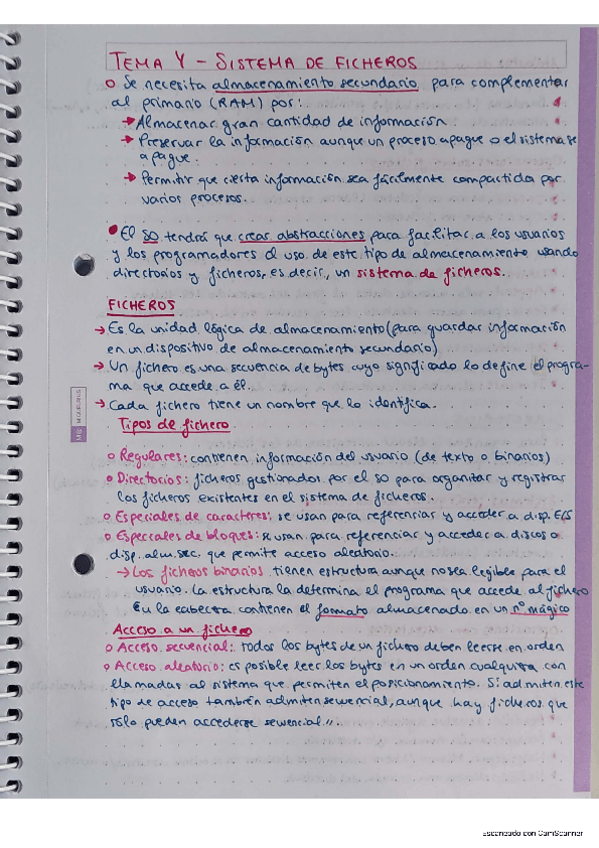 TEMA 4 - SISTEMA DE FICHEROS
Se necesita almacenamiento secundario para complementar
al primario (RAM) por:
→ Almacenar gran cantidad de información
→ Preservar la información aunque un proceso apague o el sistema se
apague.
→ Permitir que cierta información sea fácilmente compartida por
varios procesos.
El SO tendrá que crear abstracciones para facilitar a los usuarios
y los programadores el uso de este tipo de almacenamiento usando
directorios y ficheros, es decir, un sistema de ficheros.
FICHEROS
→ Es la unidad lógica de almacenamiento (para guardar información
en un dispositivo de almacenamiento secundario)
→ Un fichero es una secuencia de bytes cuyo significado lo define el progra-
ma que accede a él.
→ Cada fichero tiene un nombre que lo identifica.
Tipos de fichero
Regulares: contienen información del usuario (de texto o binarios)
Directorios: ficheros gestionados por el SO para organizar y registrar
los ficheros existentes en el sistema de ficheros.
Especiales de caracteres: se usan para referenciar y acceder a disp. E/S
Especiales de bloques: se usan para referenciar y acceder a discos o
disp. alm. sec. que permite acceso aleatorio.
→ Los ficheros binarios tienen estructura aunque no sea legible para el
usuario. La estructura la determina el programa que accede al fichero
En la cabecera contienen el formato almacenado en un nº mágico
Acceso a un fichero
Acceso secuencial: todos los bytes de un fichero deben leerse en orden
Acceso aleatorio: es posible leer los bytes en un orden cualquiera con
llamadas al sistema que permiten el posicionamiento. Si admiten este
tipo de acceso también admiten sewencial, aunque hay ficheros que
sólo pueden accederse sewencial.
Escaneado con CamScanner